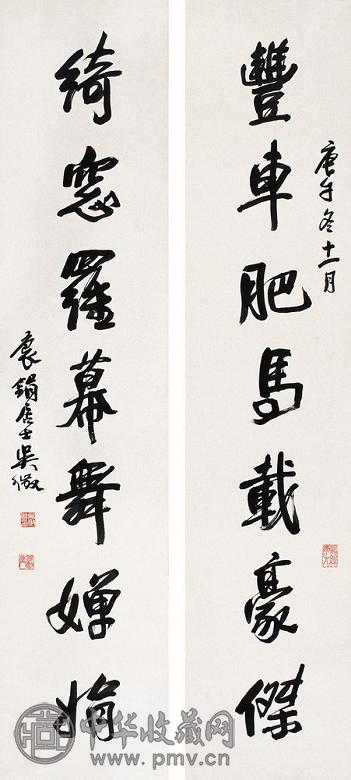 庚午冬十一月
豐車肥馬載豪傑
綺窓羅幕舞嬋娟
袌鋗居士吳徵
中华收藏网
www.pmv.cn